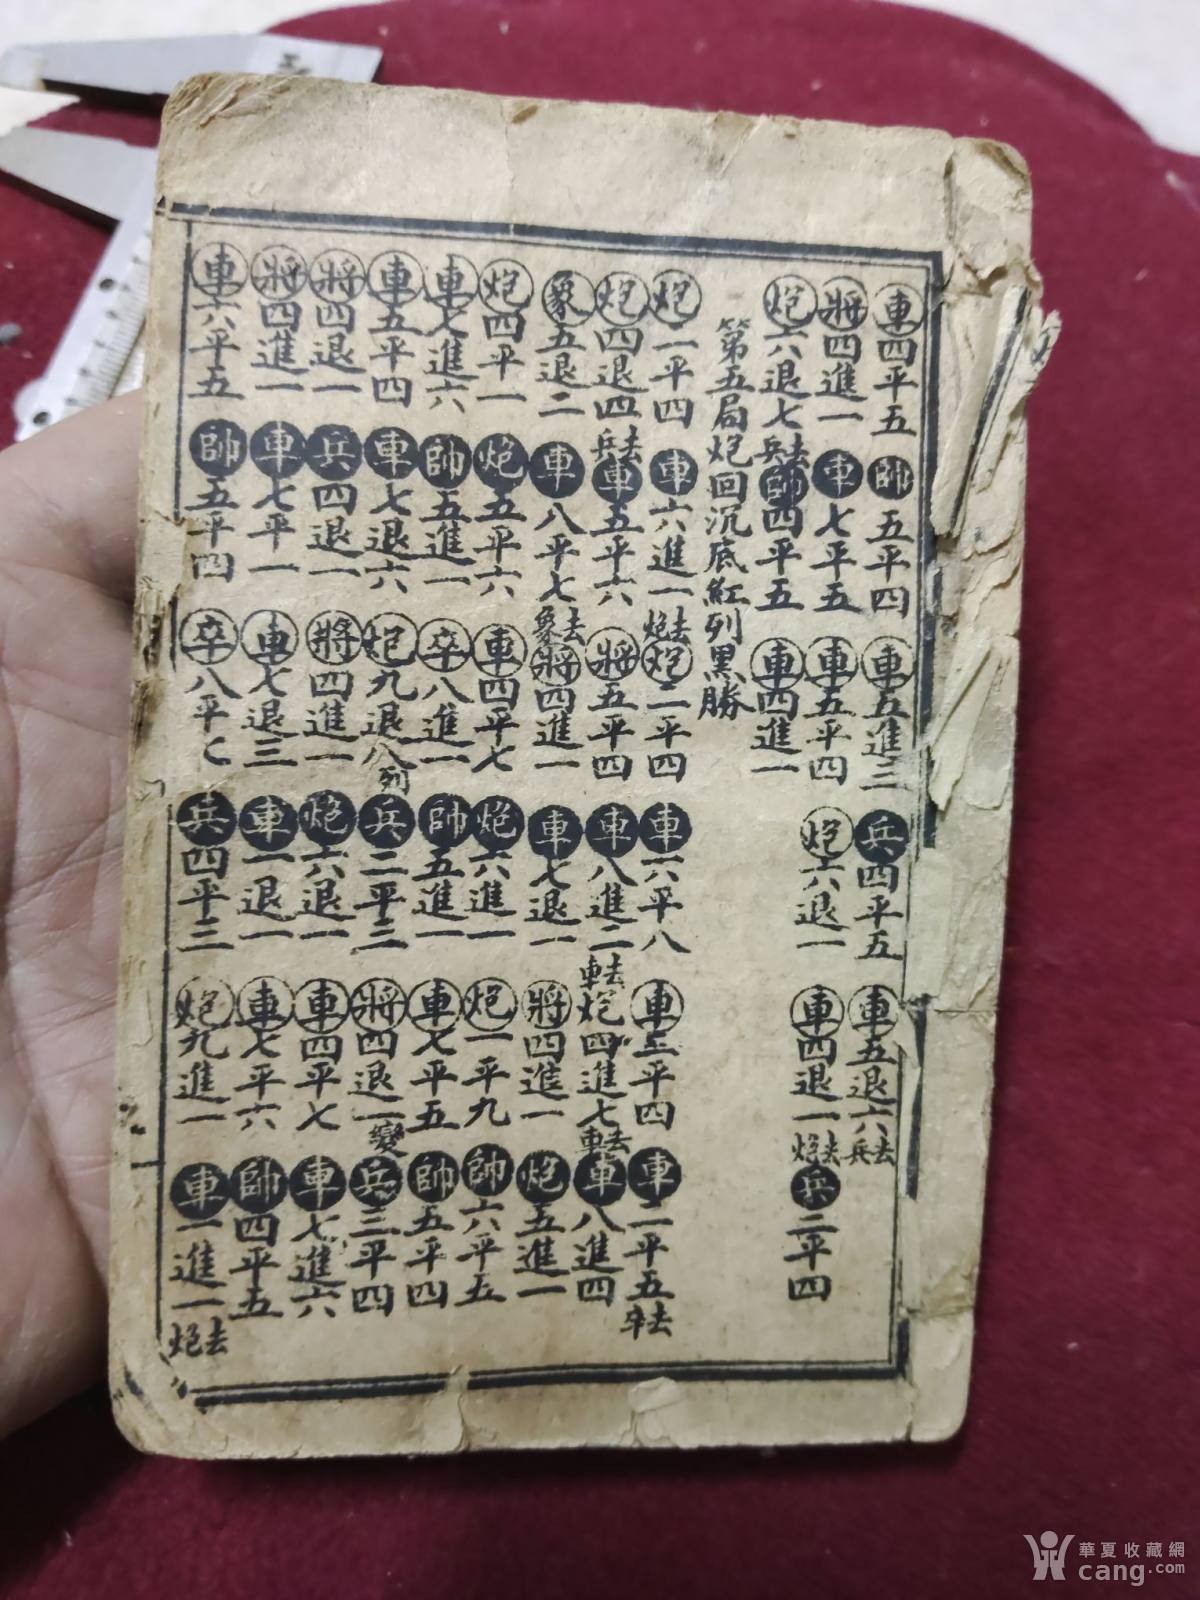 車四平五 帥五平四 車五進三 兵四平五 車五退六兵去
將四進一 車七平五 車五平四 炮六退一 車四退一炮去
炮六退七兵去 帥四平五 車四進一 兵二平四
第五局炮回沉底紅列黑勝
炮一平四 車六進一炮去 炮二平四 車六平八 車三平四 車二平五卒去
炮四退四兵去 車五平六 將五平四 車八進二車去 炮四進七車去 車八進四
象五退二 車八平七象去 將四進一 車七退一 將四進一 炮五進一
炮四平一 炮五平六 車四平七 炮六進一 炮一平九 帥六平五
車七進六 帥五進一 卒八進一 帥五進一 車七平五 帥五平四
車五平四 車七退六 炮九退八列 兵二平三 將四退一變 兵三平四
將四退一 兵四退一 將四進一 炮六退一 車四平七 車七進六
將四進一 車七平一 車七退三 車一退一 車七平六 帥四平五
車六平五 帥五平四 卒八平七 兵四平三 炮九進一 車一進一炮去
華夏收藏網
cang.com